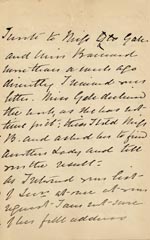 I wrote to Miss Gale
and Miss Barnard
more than a week ago
directly I received your
letter. Miss Gale declined
the work, as she has not
time for it; this I told Miss
B. and asked her to find
another Lady and tell
me the result -
As I returned your list
of at once at your
request I am not sure
of her full address